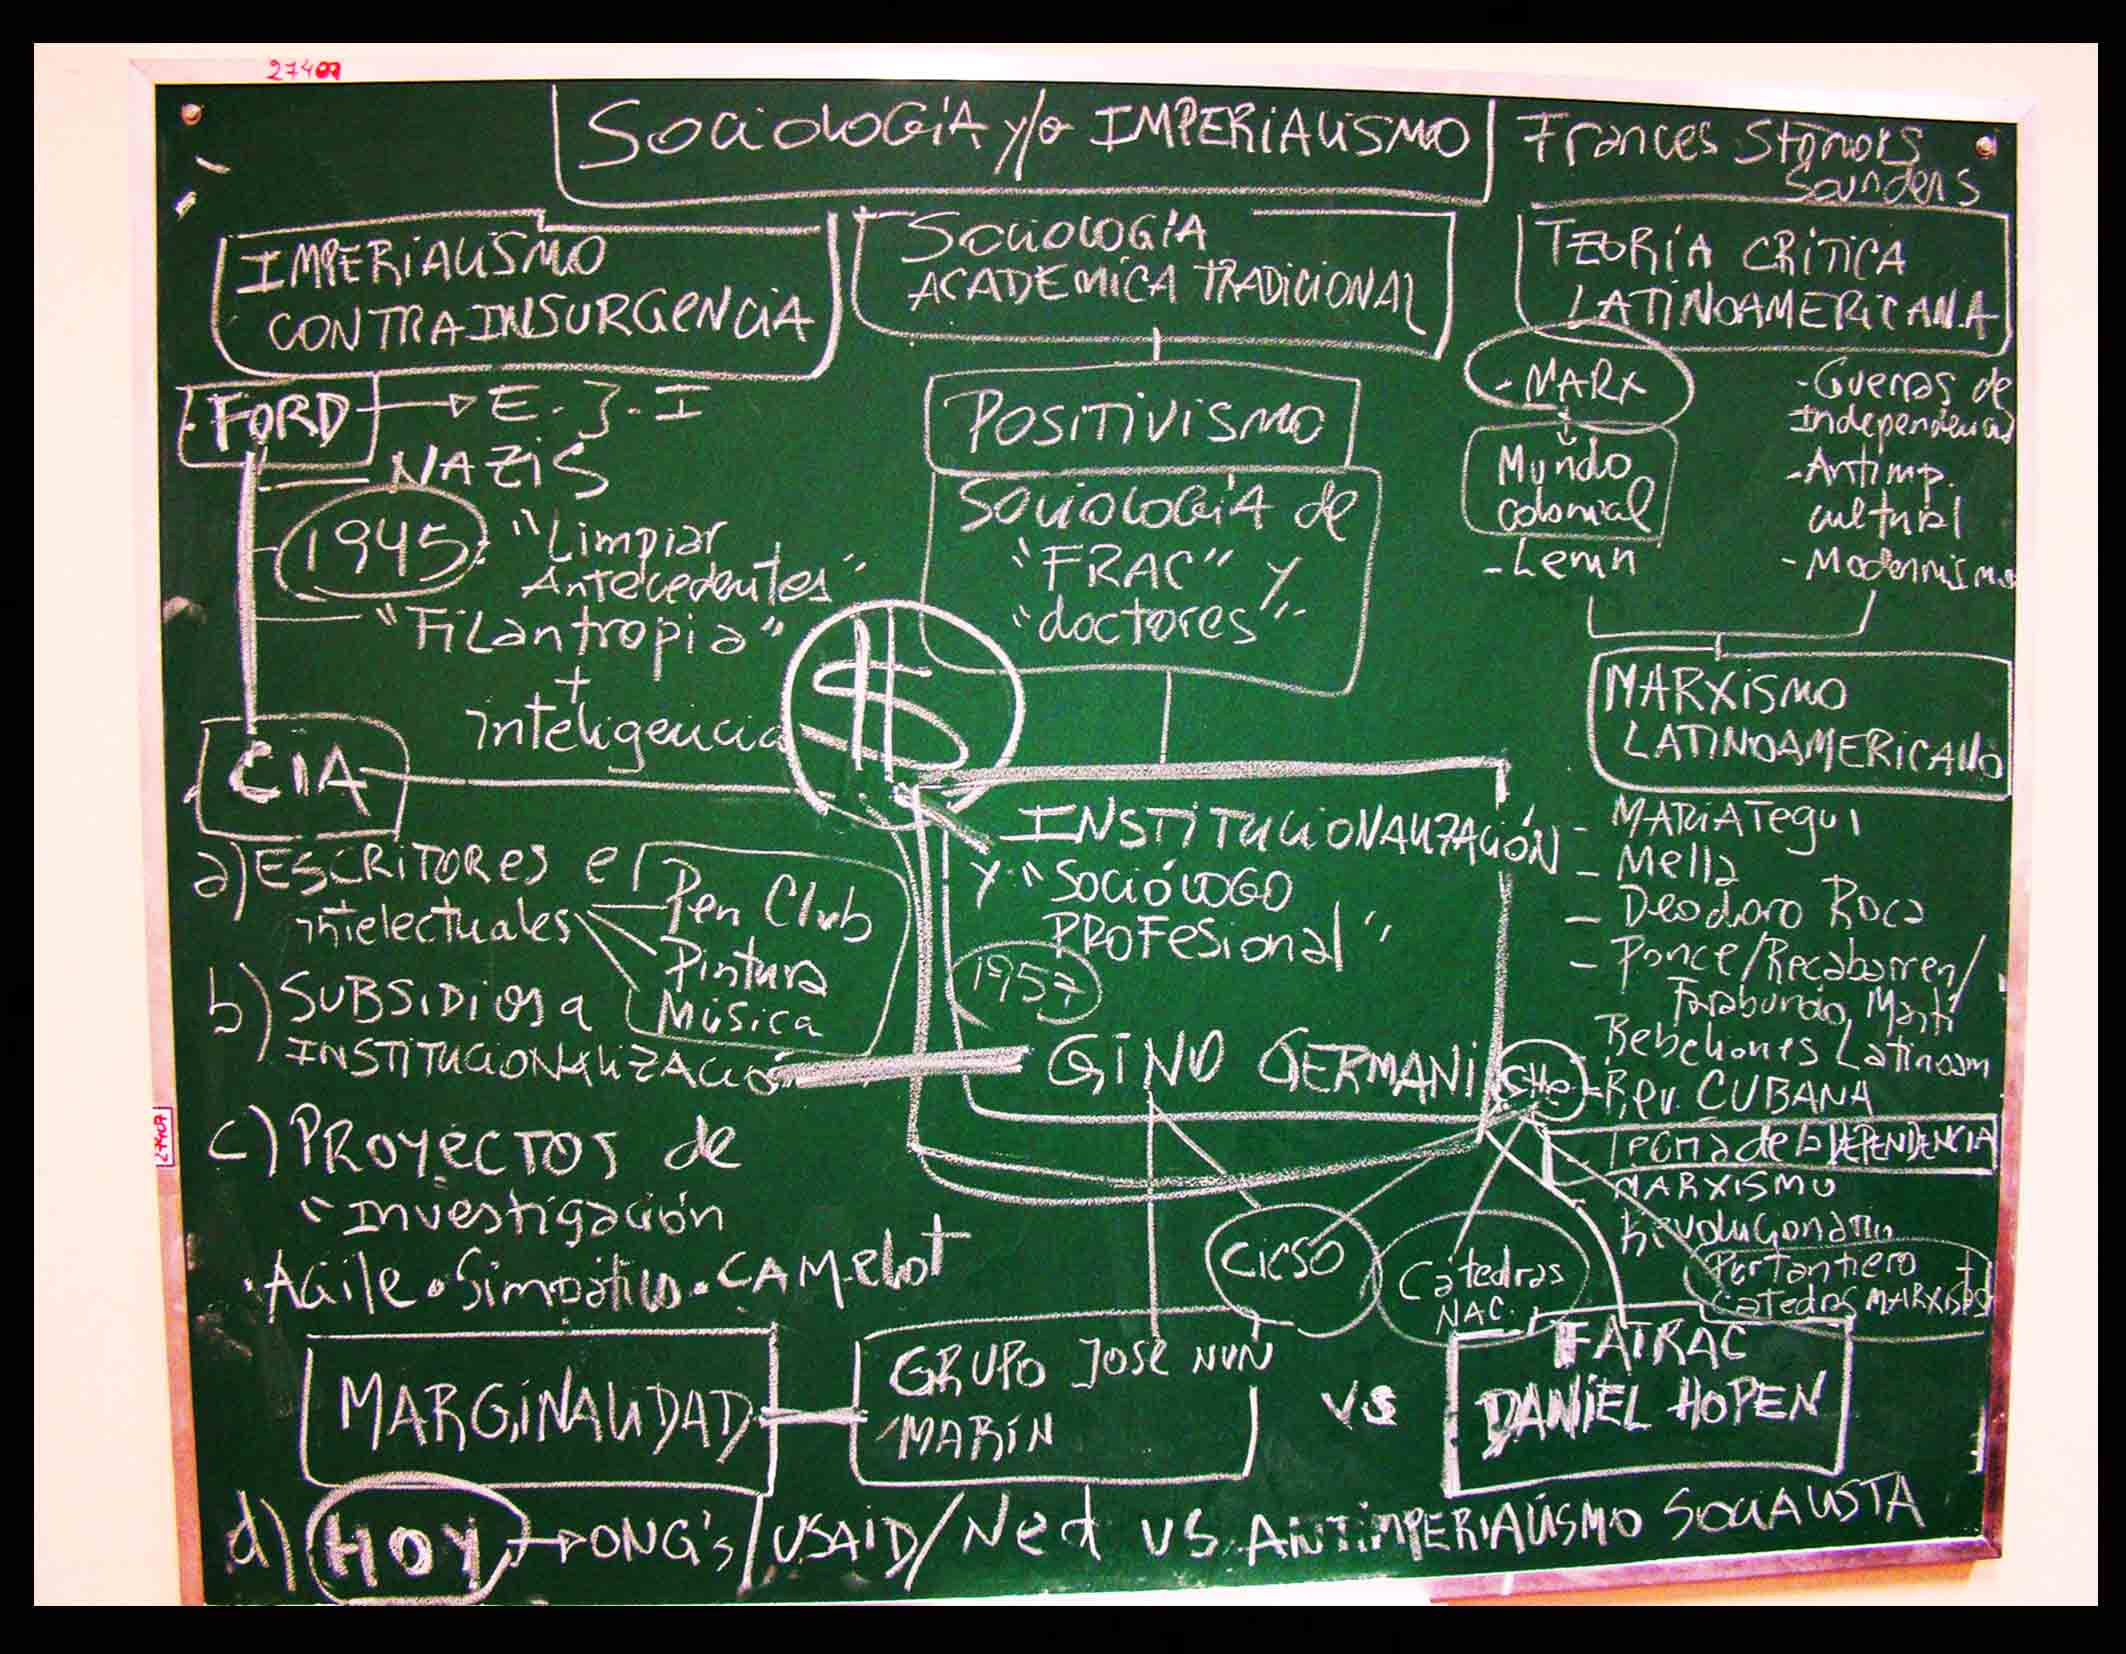 27407
SOCIOLOGÍA y/o IMPERIALISMO
Frances Stonors
Saunders
IMPERIALISMO
CONTRAINSURGENCIA
FORD
E. J. I
NAZIS
1945: "Limpiar
Antecedentes"
"Filantropia"
+
inteligencia
$
CIA
a) ESCRITORES e
intelectuales
Pen Club
Pintura
Música
b) SUBSIDIOS a
INSTITUCIONALIZACIÓ
c) PROYECTOS de
"investigación
. AGile . Simpático . CAMelot
MARGINALIDAD
SOCIOLOGÍA
ACADEMICA TRADICIONAL
POSITIVISMO
SOCIOLOGÍA de
"FRAC" y
"doctores"
INSTITUCIONALIZACIÓN
y "SOCIÓLOGO
PROFesional"
1957
GINO GERMANI
CICSO
Cátedras
NAC.
GRUPO JOSE NUN
MARÍN
vs
FATRAC
DANIEL HOPEN
TEORÍA CRÍTICA
LATINOAMERICANA
- MARX
Mundo
colonial
- Lenin
- Guerras de
Independencia
- Antimp.
cultural
- Modernismo
MARXISMO
LATINOAMERICANO
- MARIATegui
- Mella
- Deodoro Roca
- Ponce/Recabarren/
Farabundo Martí
Rebeliones Latinoam
CHe
- Rev. CUBANA
Teoría de la DEPENDENCIA
MARXISMO
Revolucionario
Portantiero +
Catedras MARXISTAS
d) HOY ONG's/USAID/Ned VS ANTIMPERIALISMO SOCIALISTA
27407